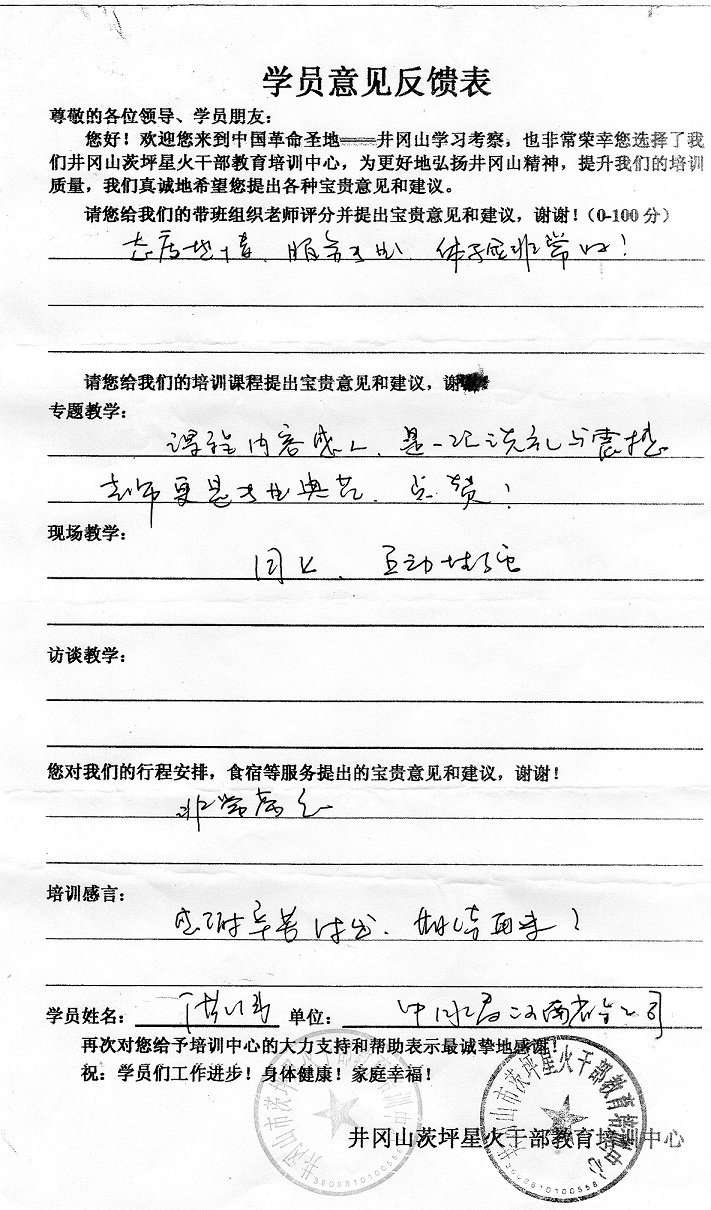 学员意见反馈表
尊敬的各位领导、学员朋友：
您好！欢迎您来到中国革命圣地——井冈山学习考察，也非常荣幸您选择了我
们井冈山茨坪星火干部教育培训中心，为更好地弘扬井冈山精神，提升我们的培训
质量，我们真诚地希望您提出各种宝贵意见和建议。
请您给我们的带班组织老师评分并提出宝贵意见和建议，谢谢！（0-100 分）
态度热情、服务专业、体验非常好！
请您给我们的培训课程提出宝贵意见和建议，谢
专题教学：
课程内容感人、是一次洗礼与震撼
老师更是专业典范、点赞！
现场教学：
同上、互动
访谈教学：
您对我们的行程安排，食宿等服务提出的宝贵意见和建议，谢谢！
非常满意
培训感言：
感谢辛苦付出、期待再来！
学员姓名： 单位： 中 河南省分公司
再次对您给予培训中心的大力支持和帮助表示最诚挚地感谢！
祝：学员们工作进步！身体健康！家庭幸福！
井冈山茨坪星火干部教育培训中心
井冈山市茨坪星火干部教育培训中心
3608810100558
井冈山市茨坪星火干部教育培训中心
3608810100558